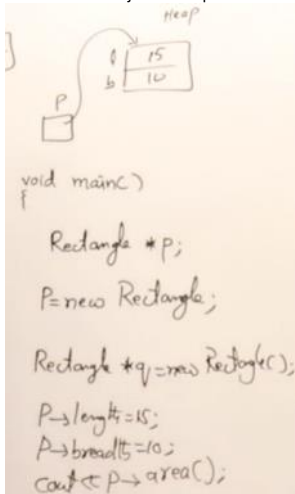 Heap
l 15
b 10
P
void main()
{
Rectangle *p;
P=new Rectangle;
Rectangle *q=new Rectangle();
P→length=15;
P→breadth=10;
cout<<P→area();